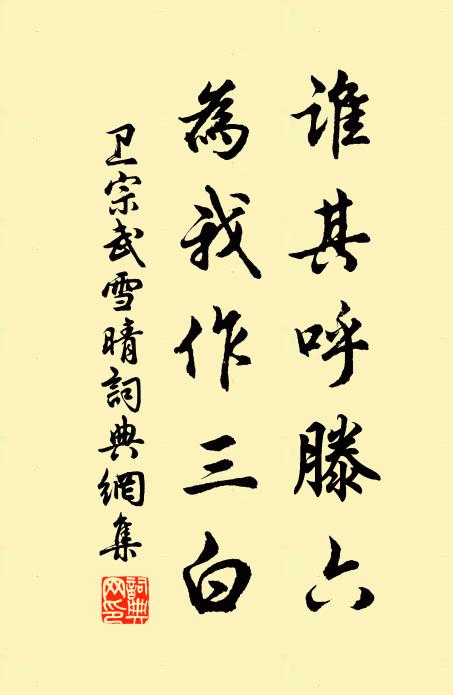 誰其呼滕六
為我作三白
卫宗武雪晴詞典網集
詞典網印